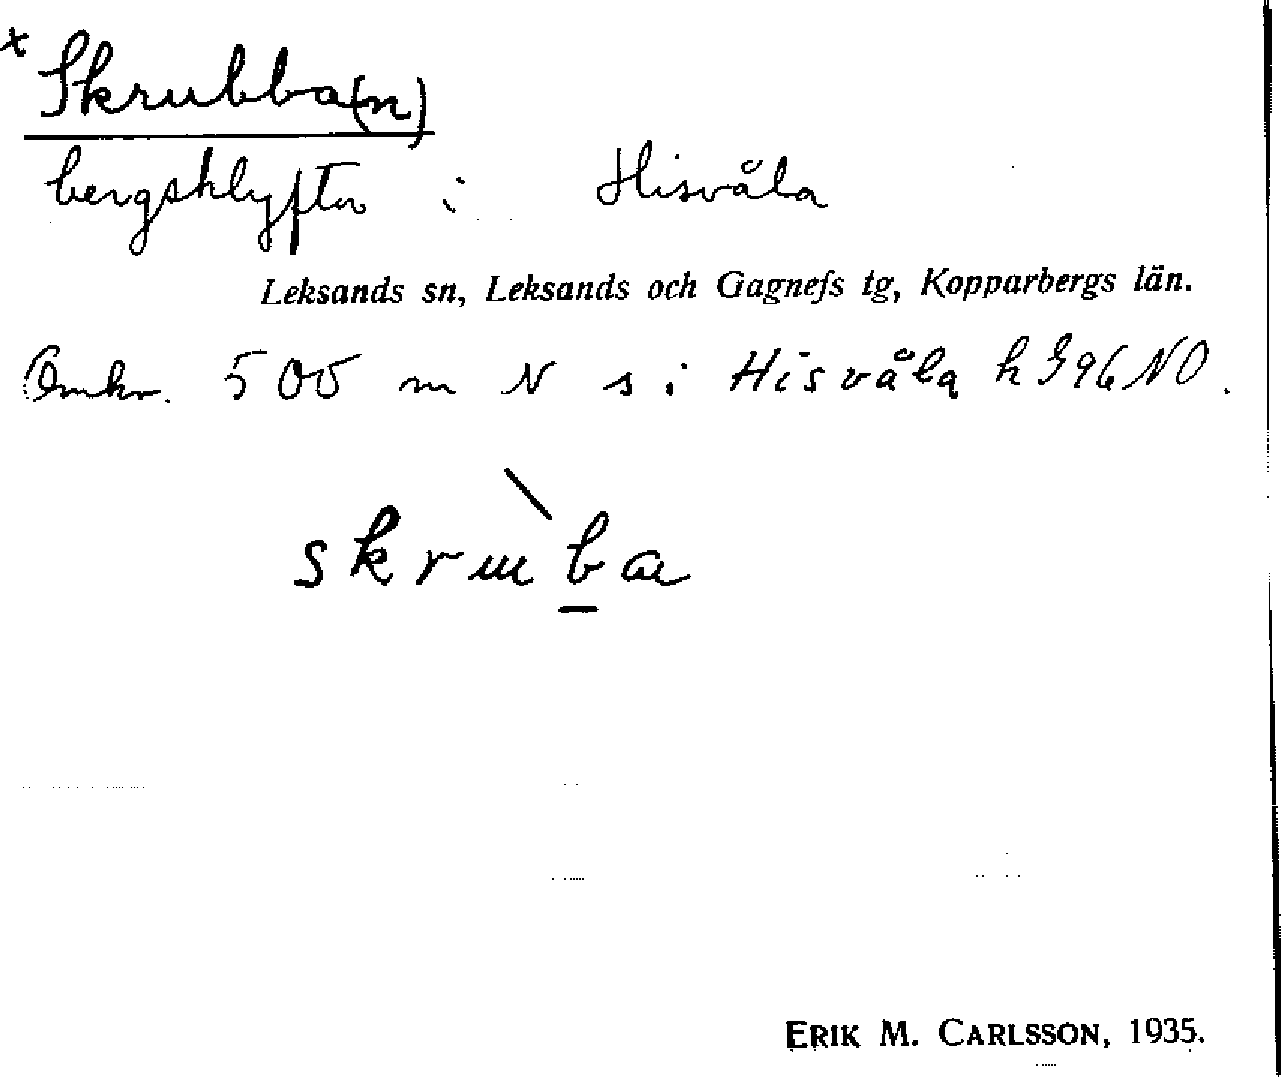 x Skrubba(n)
bergsklyfta i Hisvåla
Leksands sn, Leksands och Gagnefs tg, Kopparbergs län.
Omkr. 500 m N s i Hisvåla k 996 NO.
skruba
ERIK M. CARLSSON, 1935.